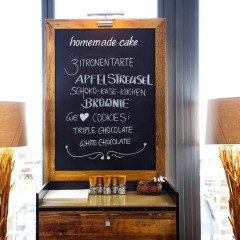 homemade cake
ZITRONENTARTE
APFELSTREUSEL
SCHOKO-KÄSE-KUCHEN
BROWNIE
WE ♥ COOKIES:
TRIPLE CHOCOLATE
WHITE CHOCOLATE